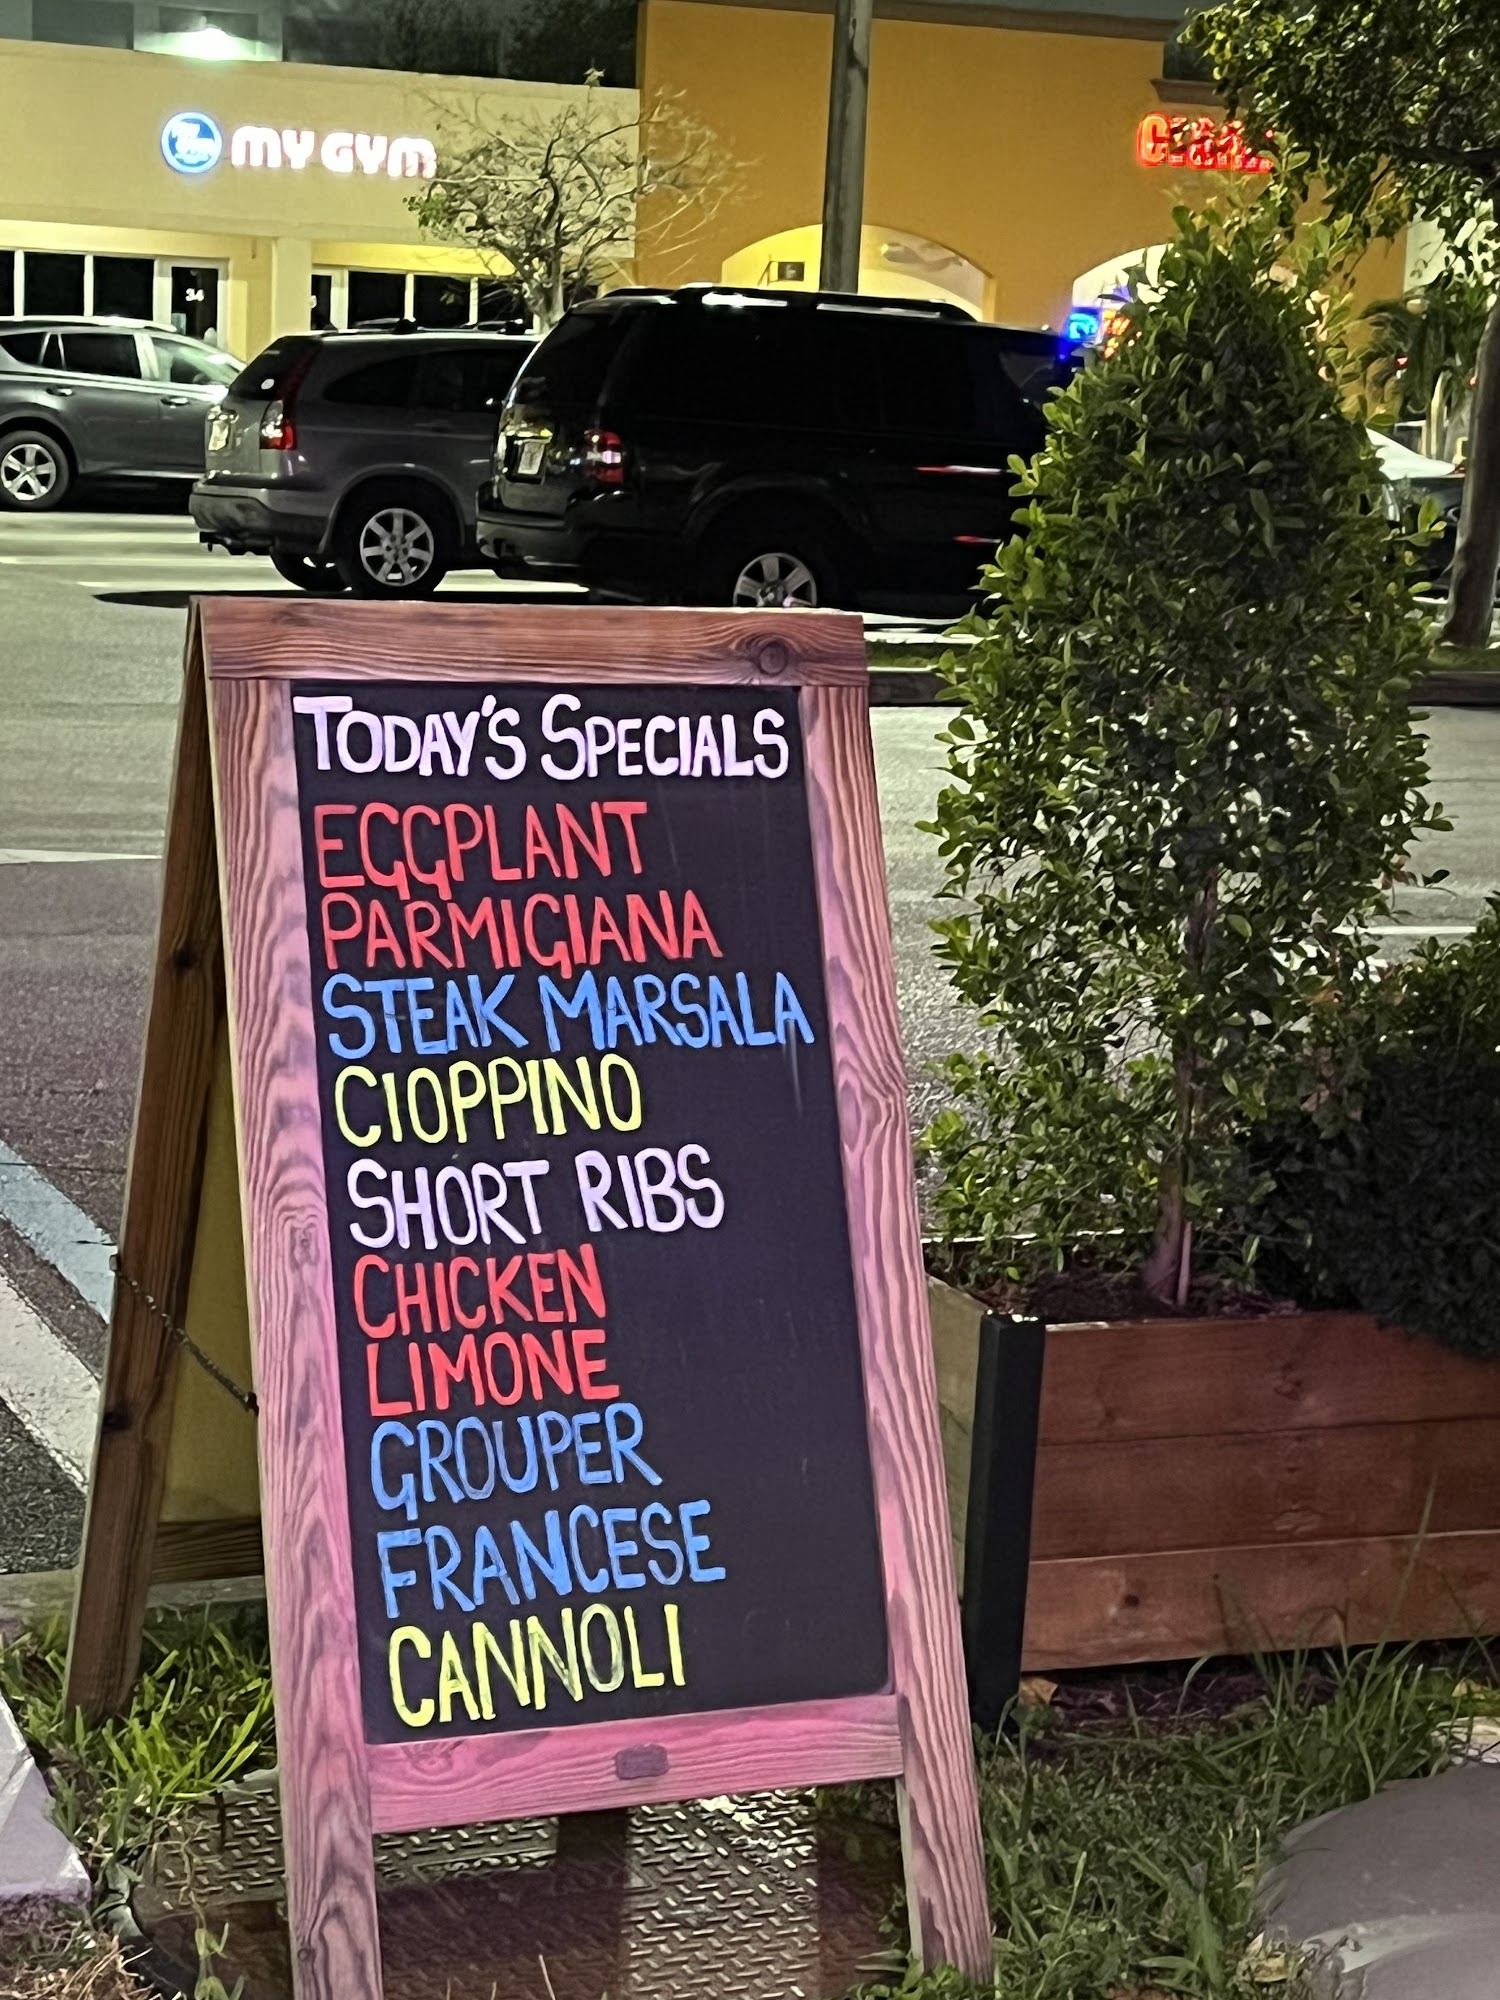 MY GYM
34
TODAY'S SPECIALS
EGGPLANT
PARMIGIANA
STEAK MARSALA
CIOPPINO
SHORT RIBS
CHICKEN
LIMONE
GROUPER
FRANCESE
CANNOLI